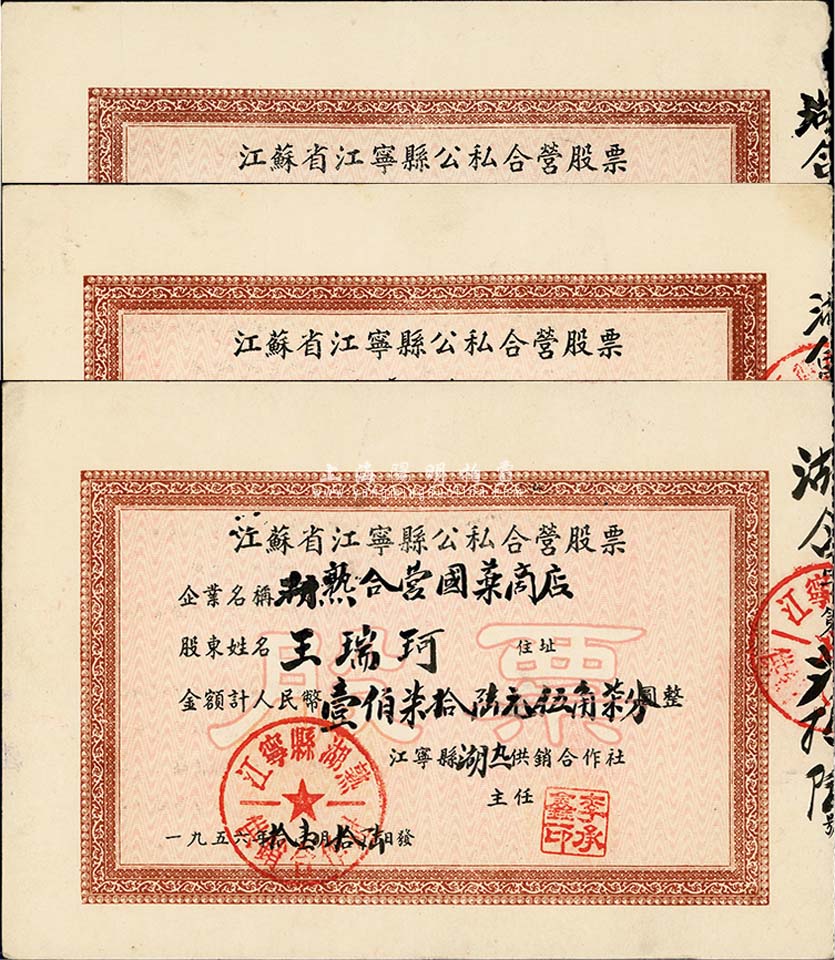 江蘇省江寧縣公私合營股票
江蘇省江寧縣公私合營股票
上海陽明拍賣
江蘇省江寧縣公私合營股票
企業名稱 湖熟合营國葯商店
股東姓名 王瑞珂 住址
股票
金額計人民幣壹佰柒拾陆元伍角柒分圓整
江寧縣湖熟供銷合作社
主任
李承鑫印
江寧縣湖熟供銷合作社
一九五六年拾壹月拾陆日發
湖合
湖合
湖合
江寧